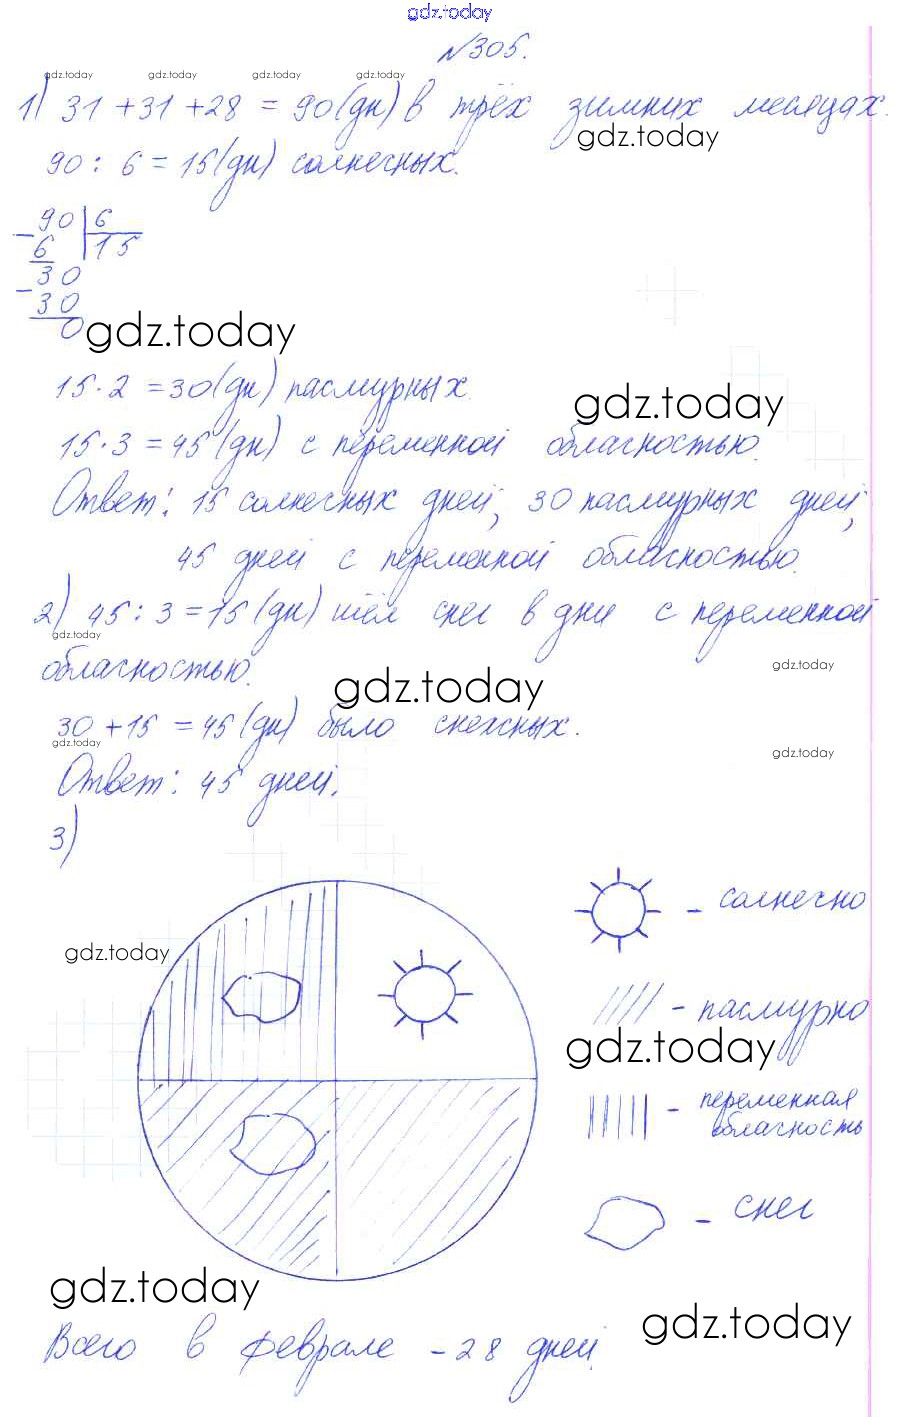 gdz.today
№305.
gdz.today gdz.today gdz.today gdz.today
1) 31 + 31 + 28 = 90 (дн) в трёх зимних месяцах.
gdz.today
90 : 6 = 15 (дн) солнечных.
90 | 6
- 6 | 15
30
- 30
0
gdz.today
15 · 2 = 30 (дн) пасмурных.
gdz.today
15 · 3 = 45 (дн) с переменной облачностью.
Ответ: 15 солнечных дней, 30 пасмурных дней,
45 дней с переменной облачностью.
2) 45 : 3 = 15 (дн) шёл снег в дни с переменной
gdz.today
облачностью.
gdz.today
gdz.today
30 + 15 = 45 (дн) было снежных.
gdz.today
gdz.today
Ответ: 45 дней.
3)
- солнечно
gdz.today
- пасмурно
gdz.today
- переменная
облачность
- снег
gdz.today
gdz.today
Всего в феврале - 28 дней.